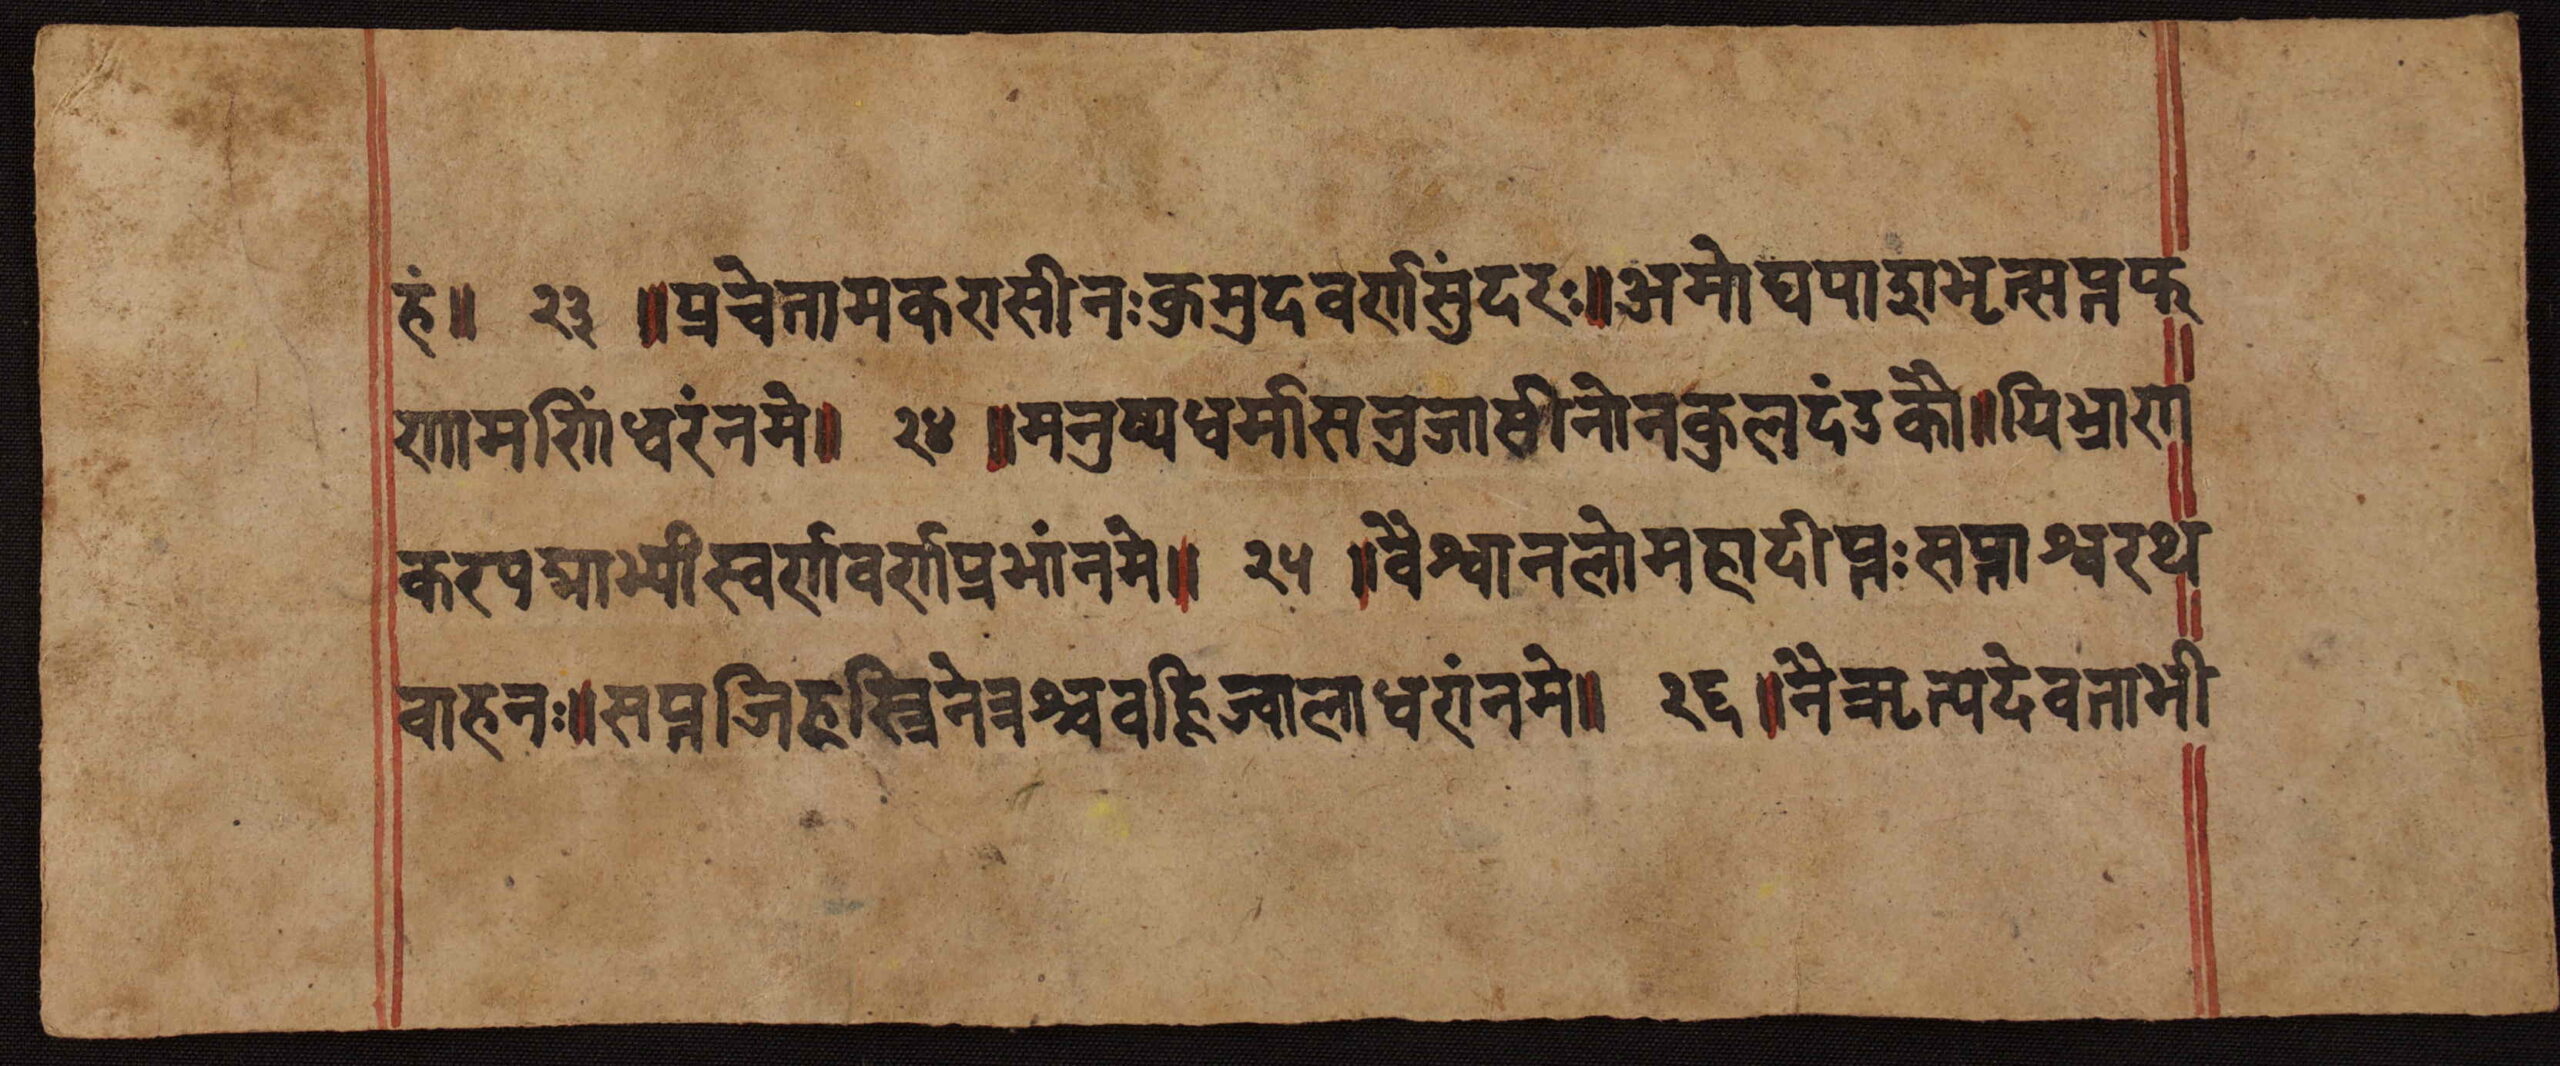 हं॥ २३ ॥प्रचेतामकरासीनःक्रमुदवर्णसुंदरः॥अमोघपाशभृत्सप्तफ
णामणिंध्वरंनमे॥ २४ ॥मनुष्यधर्मासनुजासीनोनकुलदंडकौ॥यिभ्राण
करपद्माभ्यीस्वर्णवर्णप्रभांनमे॥ २५ ॥वैश्वानलोमहादीप्तःसप्ताश्वरथ
वाहनः॥सप्तजिह्वस्त्रिनेत्रश्चवह्निज्वालाधरांनमे॥ २६ ॥नैऋत्यदेवताभी